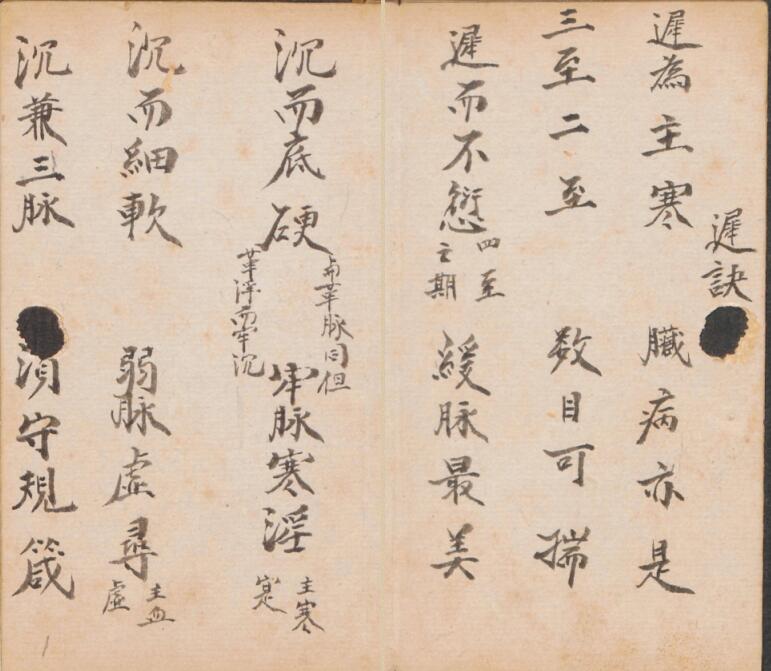 遲訣
遲為主寒 臟病亦是
三至二至 数目可揣
遲而不愆 四至之期 緩脉最美
沉而底硬 與革脉同但革浮而牢沉 牢脉寒淫 主寒寔
沉而細軟 弱脉虛尋 主血虛
沉兼三脉 須守規箴